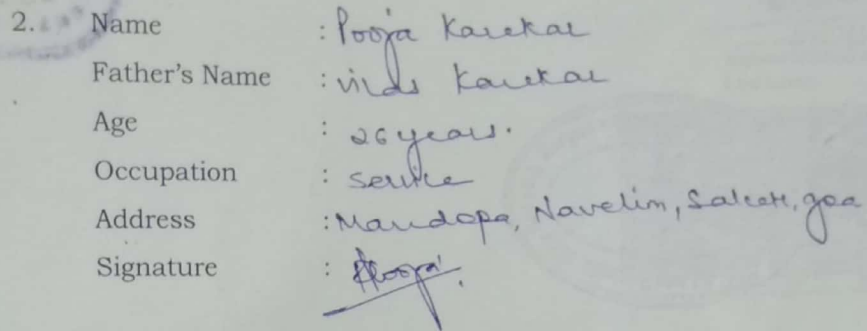 2. Name : Pooja Karekar
Father's Name : Karekar
Age : 26 years.
Occupation : Service
Address : Mandopa, Navelim, Salcete, goa
Signature : Pooja